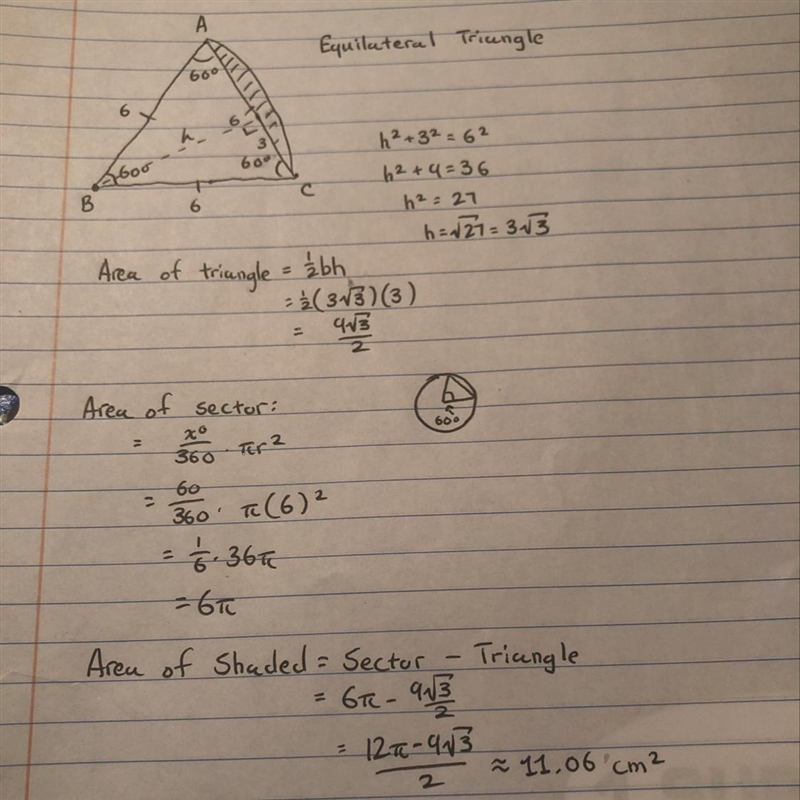 A
Equilateral Triangle
60°
6
h
6
3
60°
60°
B
6
C
h² + 3² = 6²
h² + 9 = 36
h² = 27
h = √27 = 3√3
Area of triangle = ½bh
= ½(3√3)(3)
= 9√3/2
Area of sector:
= x°/360 · πr²
60°
= 60/360 · π(6)²
= 1/6 · 36π
= 6π
Area of Shaded = Sector − Triangle
= 6π − 9√3/2
= (12π − 9√3)/2 ≈ 11.06 cm²